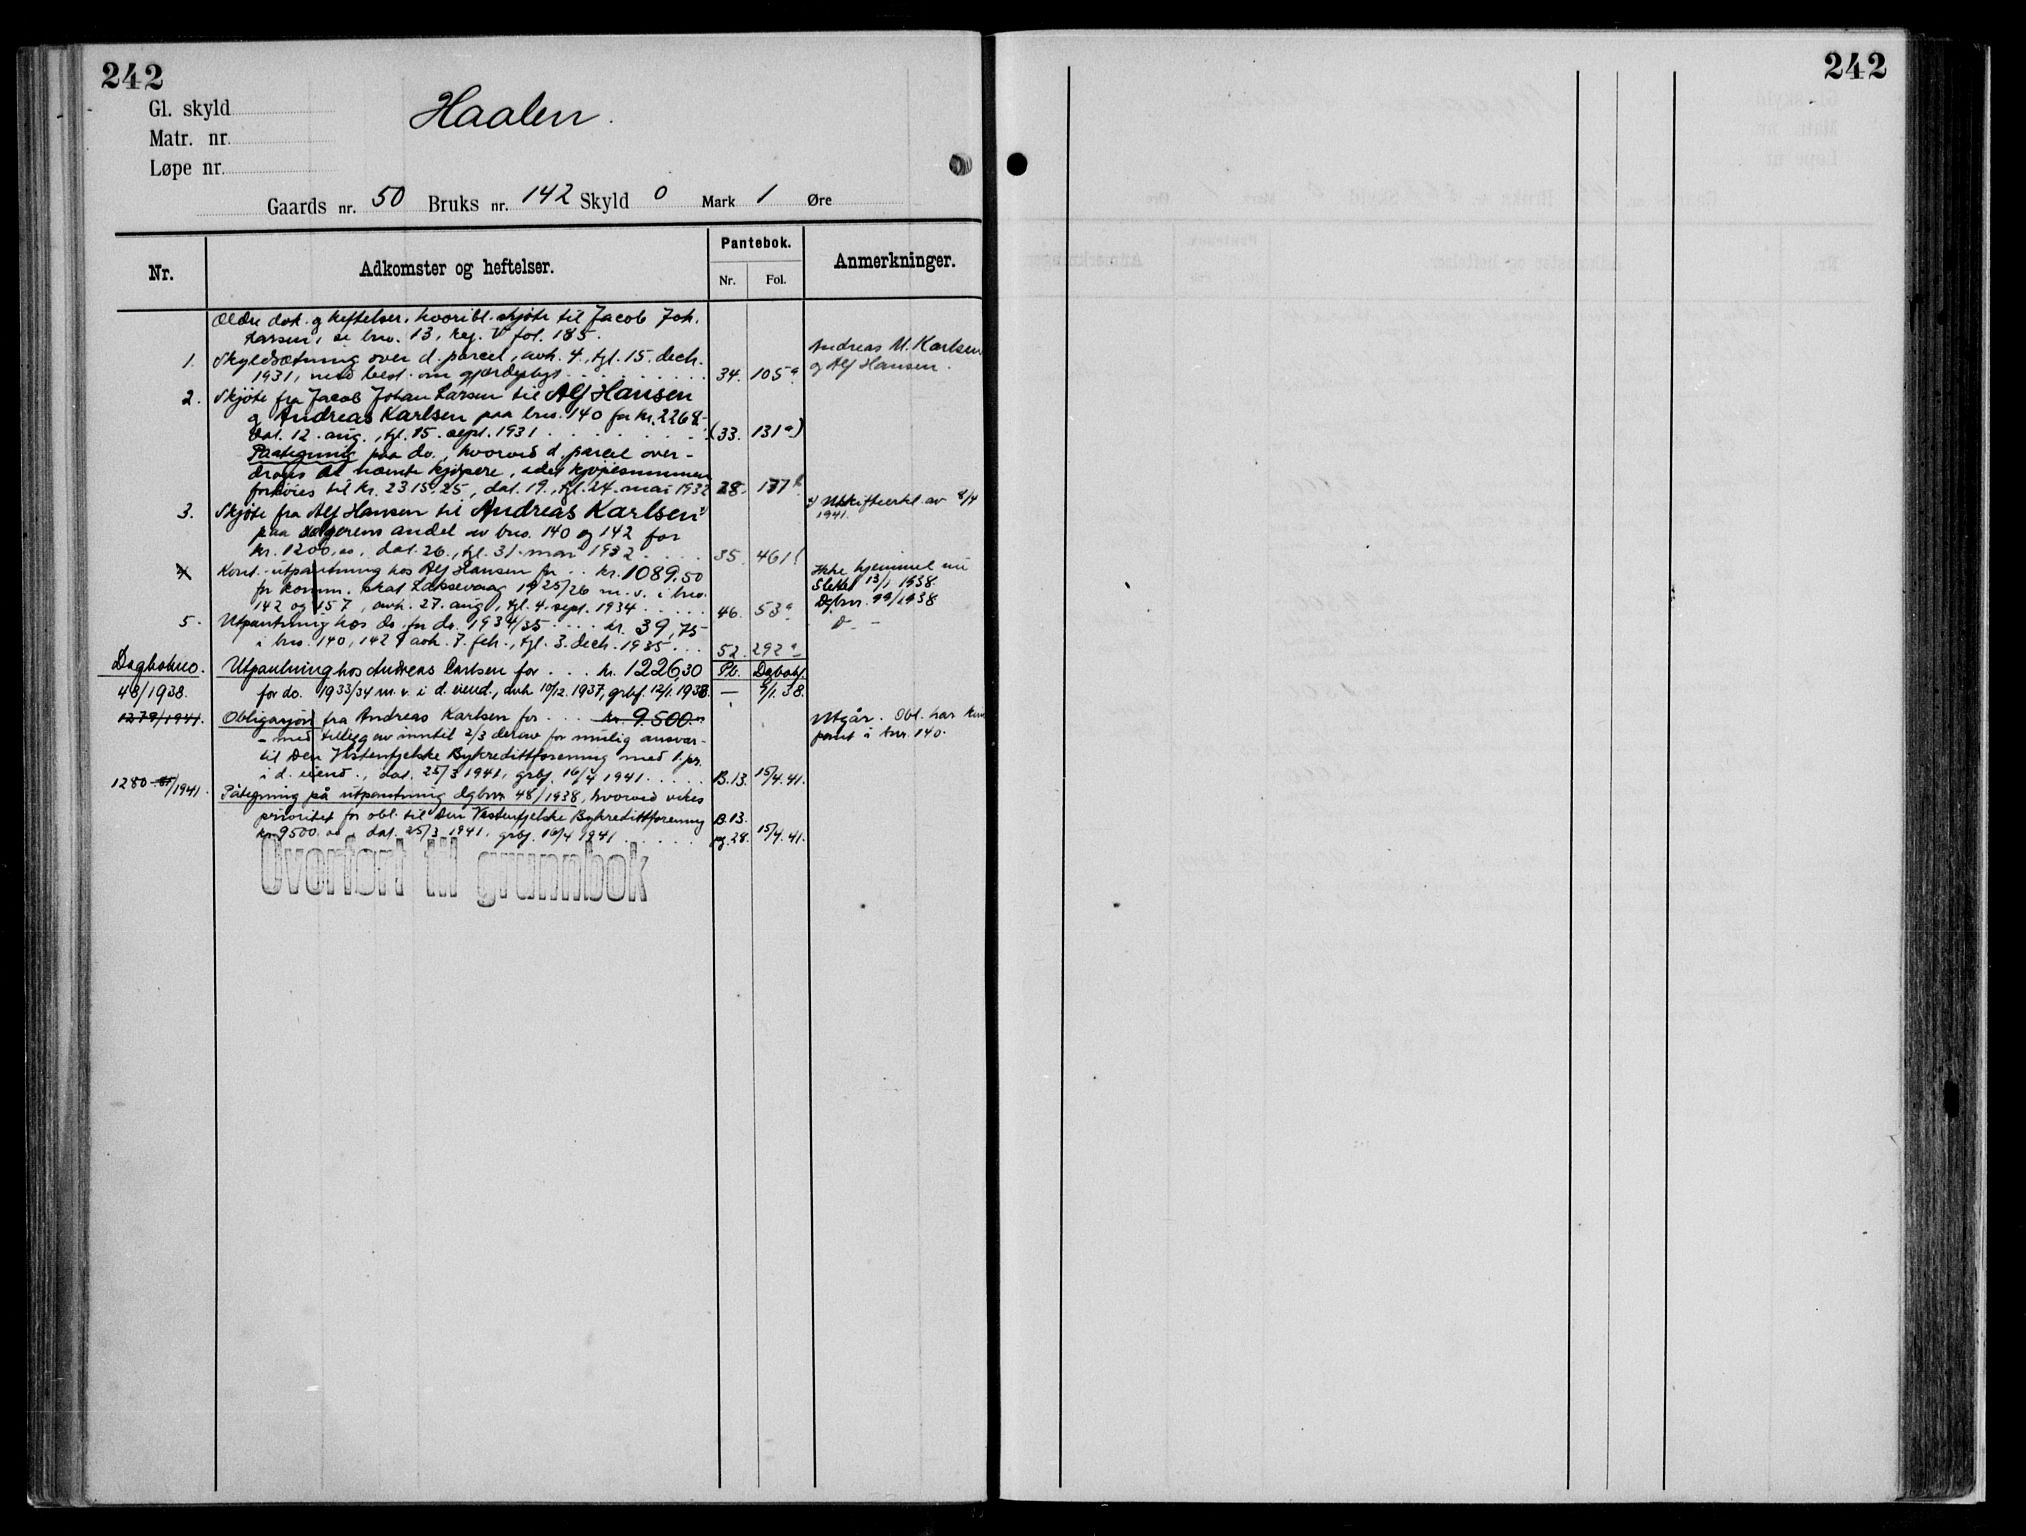 242
242
Gl. skyld
Haalen.
Matr. nr.
Løpe nr.
Gaards nr. 50 Bruks nr. 142 Skyld 0 Mark 1 Øre
Nr. Adkomster og heftelser. Pantebok. Nr. Fol. Anmerkninger.
Ældre dok. g heftelser, hvoribl. skjøte til Jacob Joh.
Larsen, se bno. 13, reg. V fol. 185.
1. Skyldsætning over d. parcel, avh. 4., tgl. 15. decb.
1931, med best. om gjærdepligt 34. 105a
Andreas M. Karlsen
og Alf Hansen.
2. Skjøte fra Jacob Johan Larsen til Alf Hansen
g Andreas Karlsen paa bno. 140 for kr. 2268,-
dat. 12. aug., tgl. 15. sept. 1931 (33. 131a)
Paategning paa do., hvorved d. parcel over-
drages de nævnte kjøpere, idet kjøpesummen
forhøies til kr. 2315,25, dat. 19., tgl. 24. mai 1932 28. 177b
3. Skjøte fra Alf Hansen til Andreas Karlsen
paa sælgerens andel av bno. 140 og 142 for
kr. 1200,00, dat. 26., tgl. 31. mai 1932 35. 461b
Uskifteerkl. av 8/4
1941.
4. Kont. utpantning hos Alf Hansen for kr. 1089,50
for komm. skat Laksevaag 1925/26 m. v. i bno.
142 og 157, avh. 27. aug., tgl. 4. sept. 1934 46. 53a
Ikke hjemmel nu
Slettet 13/1 1938.
Dgbnr. 99/1938
5. Utpantning hos do. for do. 1934/35 kr. 39,75
i bno. 140, 142, avh. 7. feb., tgl. 3. decb. 1935 52. 292a
Dagbokno. Utpantning hos Andreas Carlsen for kr. 1226,30 Pb. Dagbokf.
48/1938. for do. 1933/34 m. v. i d. eiend., avh. 10/12. 1937, grbf. 12/1. 1938. — 7/1. 38.
1279/1941. Obligasjon fra Andreas Karlsen for kr 9.500.-
- med tillegg av inntil 2/3 derav for mulig ansvar -
til Den Vestenfjelske Bykredittforening med 1. pr.
i d. eiend., dat. 25/3 1941, grbf. 16/4 1941 B. 13. 15/4. 41.
Utgår. Obl. har kun
pant i bnr. 140.
1280/1941. Påtegning på utpantning dgbnr 48/1938, hvorved vikes
prioritet for obl. til Den Vestenfjelske Bykredittforening
kr. 9500.00, dat. 25/3 1941, grbf. 16/4 1941 B. 13. pg. 28. 15/4. 41.
Overført til grunnbok